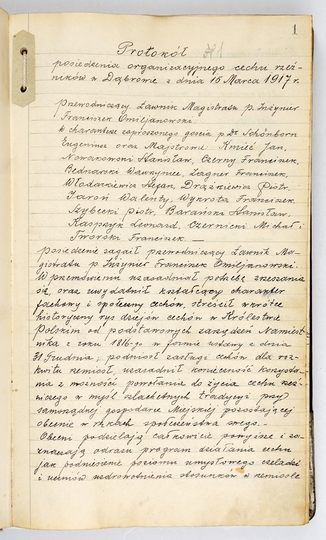 1
Protokół №1
posiedzenia organizacyjnego cechu rzeź-
ników w Dąbrowie z dnia 15 Marca 1917 r.
Przewodniczący Ławnik Magistratu p. Inżynier
Franciszek Emiljanowski
w charakterze zaproszonego gościa p Dr Schönborn
Eugeniusz oraz Majstrowie Kmieć Jan,
Nowakowski Stanisław, Czerny Franciszek,
Bednarski Wawrzyniec, Lagner Franciszek,
Włodarkiewicz Stefan, Drążkiewicz Piotr,
Jaroń Walenty, Wykrota Franciszek
Szybecki Piotr, Barański Stanisław.
Kasprzyk Leonard, Czernicki Michał i
Twórski Franciszek. —
Posiedzenie zagaił przewodniczący Ławnik Ma-
gistratu p. Inżynier Franciszek Emiljanowski.
W przemówieniu uzasadnił potrzebę zrzeszania
się, oraz uwydatnił kształcący charakter
fachowy i społeczny cechów, streścił w krótce
historyczny rys dziejów cechów w Królestwie
Polskim od podstawowych zarządzeń Namiest-
nika z roku 1816-go w formie ustawy z dnia
31 Grudnia, podniósł zasługi cechów dla roz-
kwitu rzemiosł, uzasadnił konieczność korzystania
z możności powołania do życia cechu rzeź-
niczego w myśl szlachetnych tradycyi przy
samorządnej gospodarce Miejskiej pozostającej
obecnie w rękach społeczeństwa swego. -
Obecni podzielają całkowicie powyższe i za-
znaczają odrazu program działania cechu
jak podniesienie poziomu umysłowego czeladzi
i uczniów uzdrowotnienia stosunków w rzemiośle